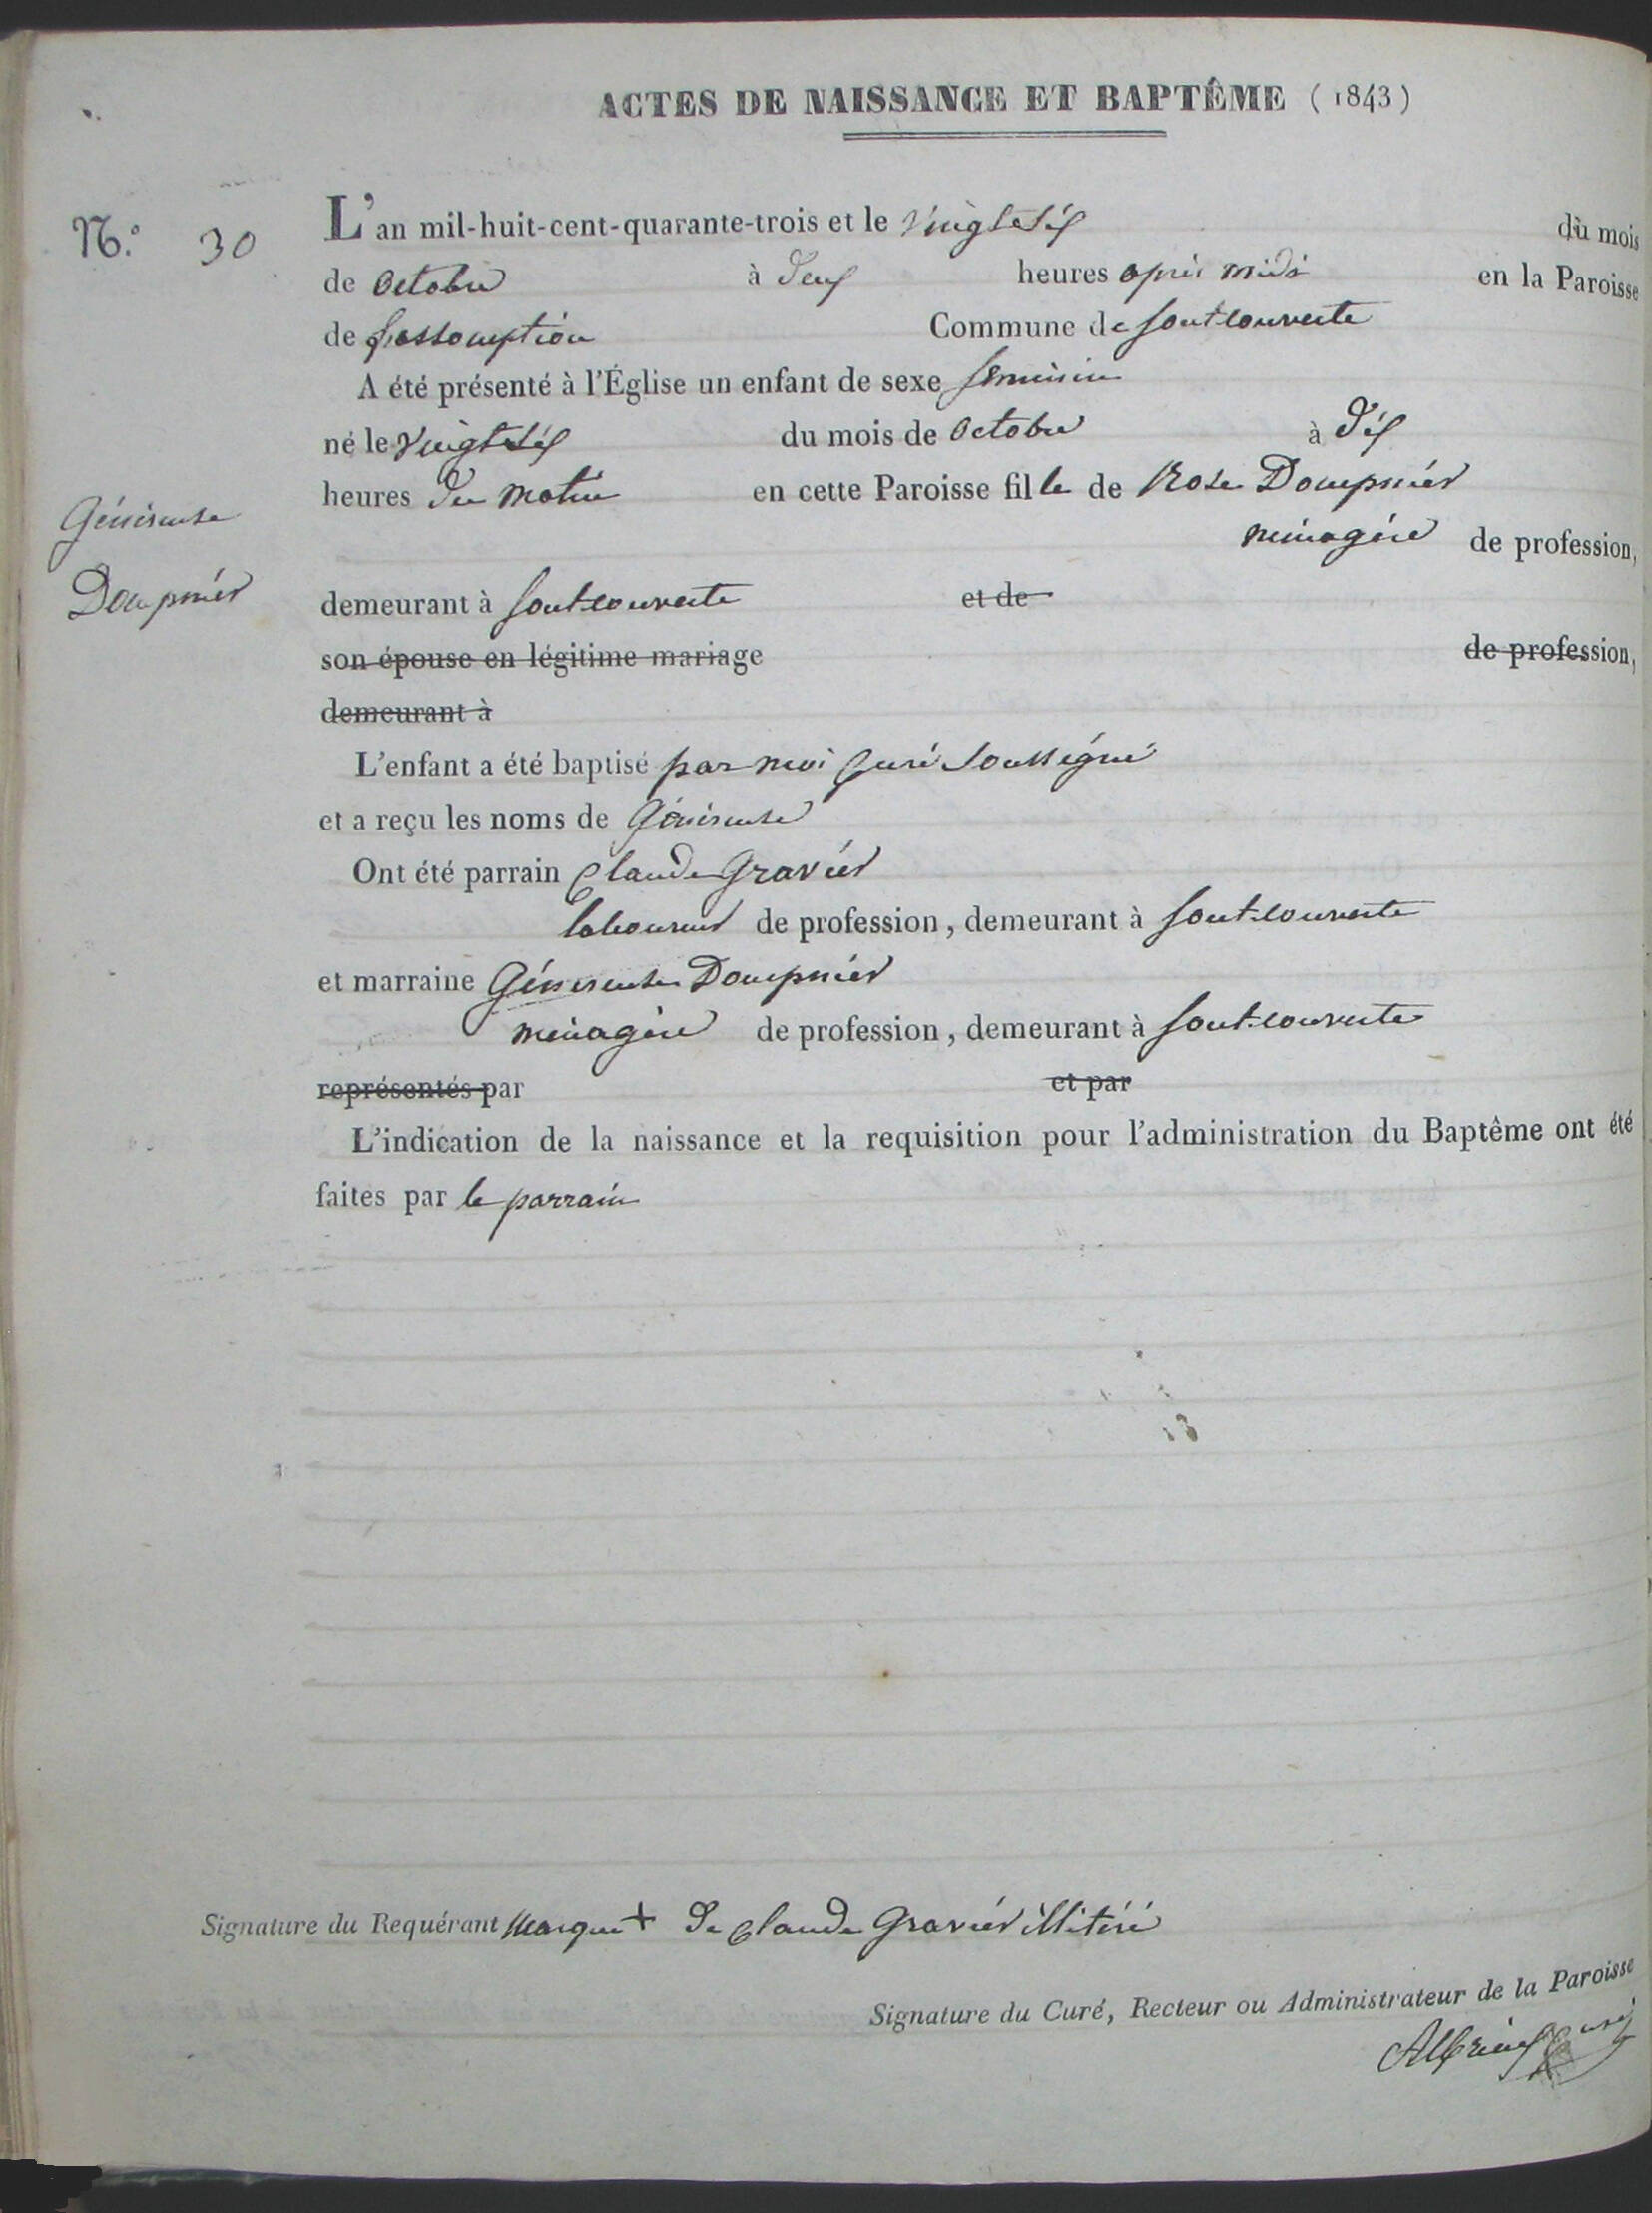 ACTES DE NAISSANCE ET BAPTÊME (1843)
N.º 30
L'an mil-huit-cent-quarante-trois et le vingt six du mois
de octobre à deux heures après midi en la Paroisse
de l'assomption Commune de fontcouverte
A été présenté à l'Église un enfant de sexe feminin
né le vingt six du mois de octobre à dix
heures du matin en cette Paroisse fille de Rose Doupnier
Généreuse
ménagère de profession,
Doupnier
demeurant à fontcouverte et de
son épouse en légitime mariage de profession,
demeurant à
L'enfant a été baptisé par moi Curé soussigné
et a reçu les noms de Généreuse
Ont été parrain Claude Gravier
laboureur de profession, demeurant à fontcouverte
et marraine Généreuse Doupnier
ménagère de profession, demeurant à fontcouverte
représentés par et par
L'indication de la naissance et la requisition pour l'administration du Baptême ont été
faites par le parrain
Signature du Requérant Marque + de Claude Gravier illitéré
Signature du Curé, Recteur ou Administrateur de la Paroisse
Curé